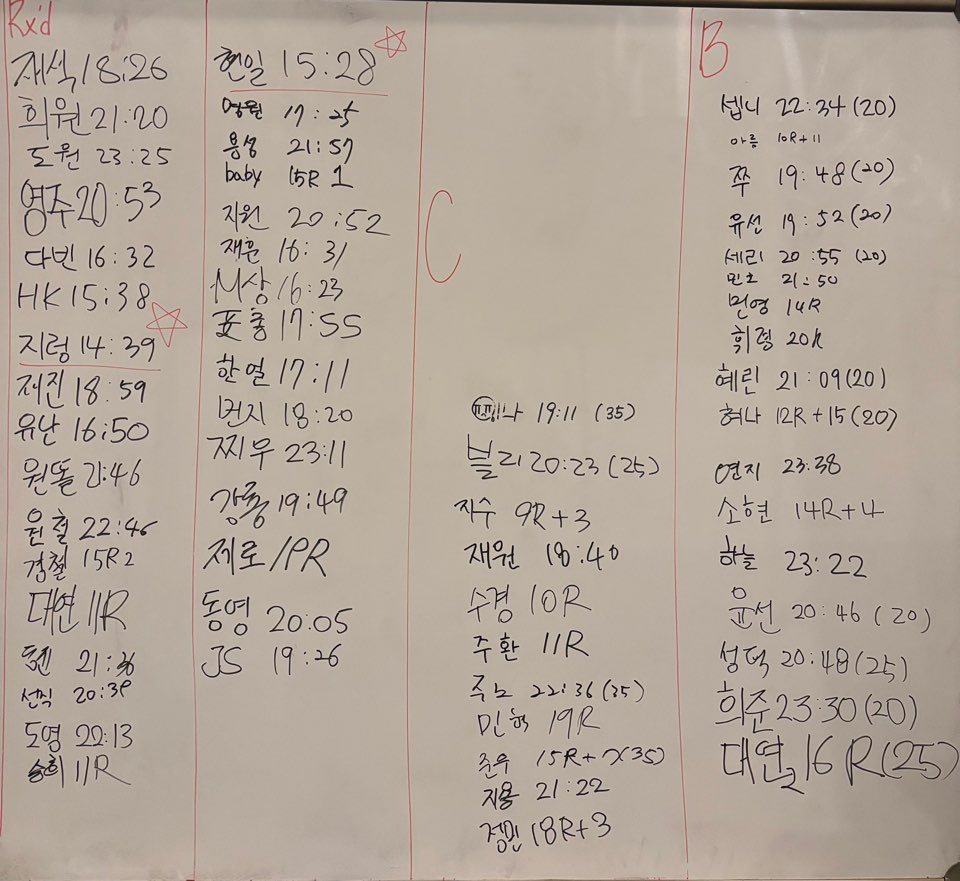 Rx'd
재석 18:26
희원 21:20
도원 23:25
영주 20:53
다빈 16:32
HK 15:38
지렁 14:39
저진 18:59
유난 16:50
원똘 21:46
원철 22:46
검철 15R 2
대연 11R
21:36
선직 20:39
도영 22:13
승희 11R
현일 15:28
영원 17:25
용성 21:57
baby 15R 1
지원 20:52
재훈 16:31
M상 16:23
표충 17:55
한열 17:11
먼지 18:20
찌우 23:11
강룡 19:49
제로 1PR
동영 20:05
JS 19:26
C
19:11 (35)
블리 20:23 (25)
지수 9R+3
재원 18:40
수경 10R
주환 11R
주노 22:36 (35)
민혁 19R
준우 15R+7 (35)
지용 21:22
정민 18R+3
B
셉니 22:34 (20)
아름 10R+11
쭈 19:48 (20)
유선 19:52 (20)
세리 20:55 (20)
민호 21:50
민영 14R
휘령 20R
혜린 21:09 (20)
허나 12R+15 (20)
연지 23:38
소현 14R+4
하늘 23:22
윤선 20:46 (20)
성덕 20:48 (25)
희준 23:30 (20)
대연2 16R (25)